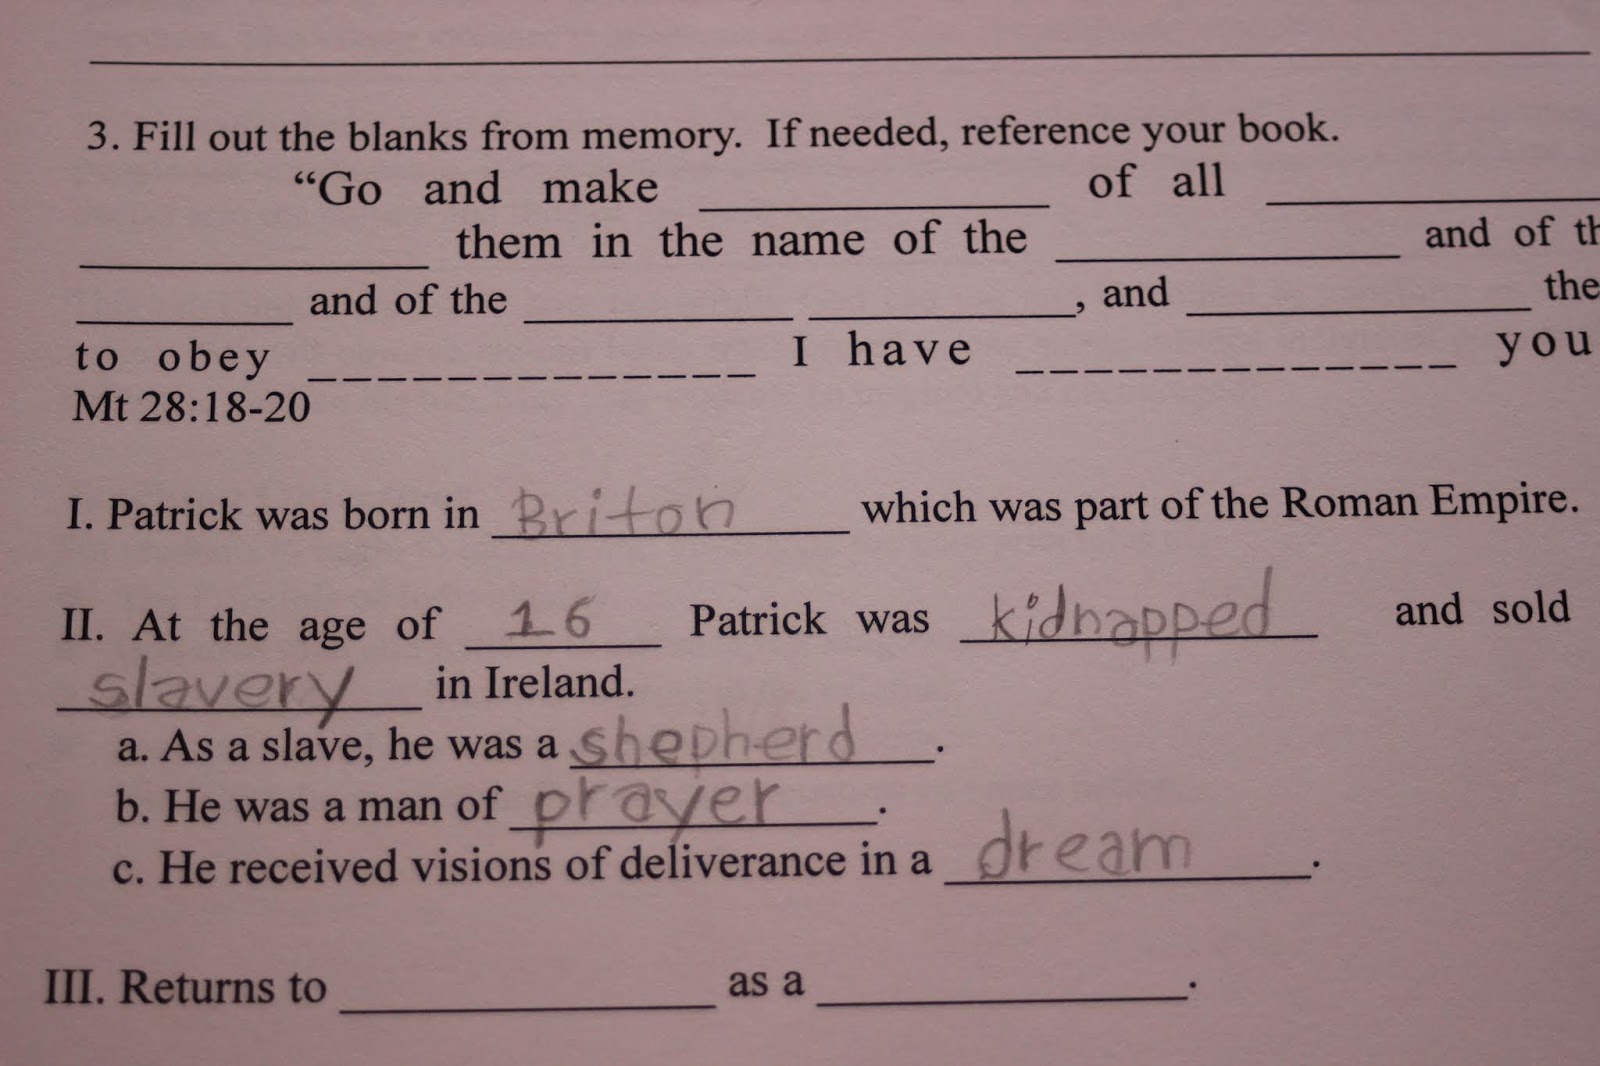 3. Fill out the blanks from memory. If needed, reference your book.
“Go and make ____________ of all ____________
____________ them in the name of the ____________ and of th
________ and of the __________ __________, and ____________ the
to obey _____________ I have _____________ you
Mt 28:18-20
I. Patrick was born in Briton which was part of the Roman Empire.
II. At the age of 16 Patrick was kidnapped and sold
slavery in Ireland.
a. As a slave, he was a shepherd.
b. He was a man of prayer.
c. He received visions of deliverance in a dream.
III. Returns to ____________ as a ____________.